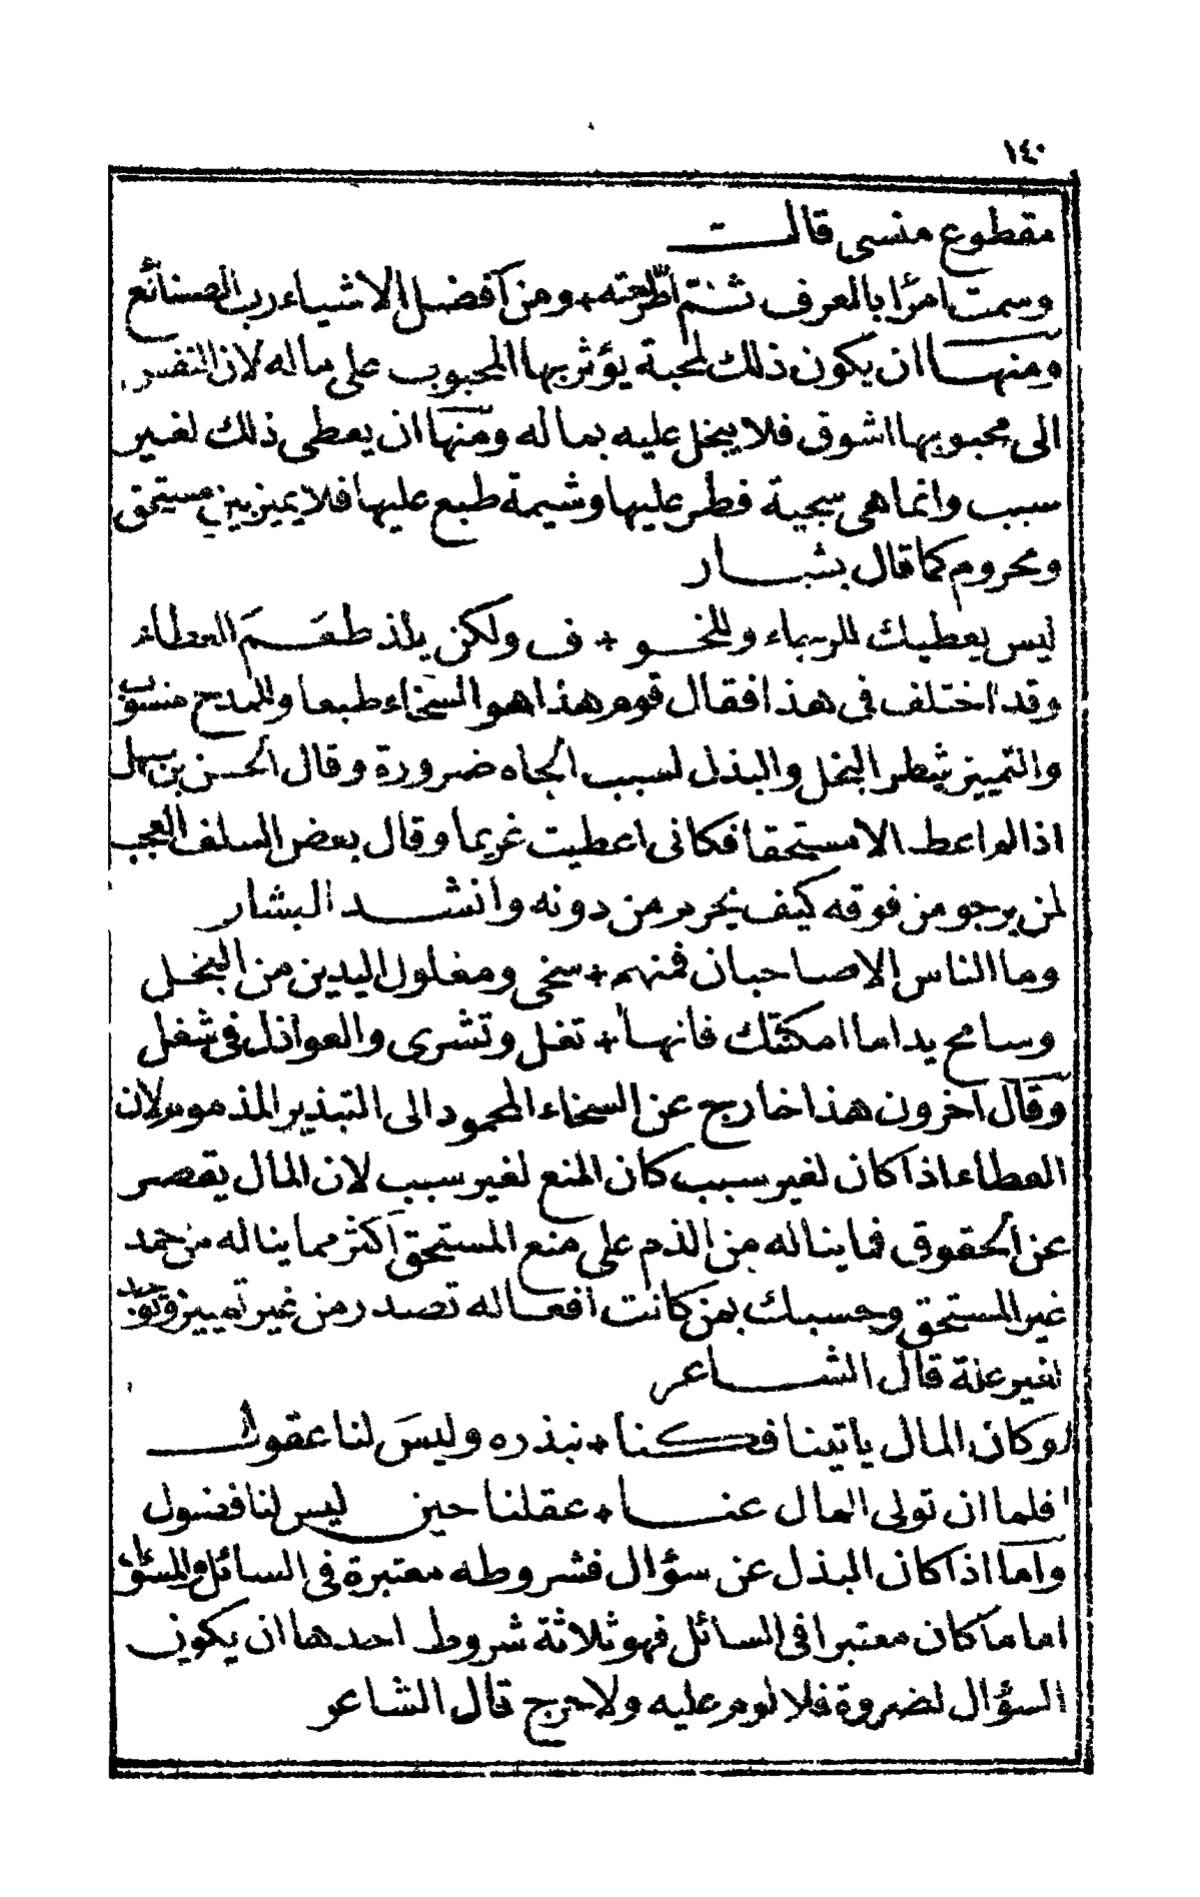 ١٤٠
مقطوع منسى قالت
وسمت امرأ بالمعرف ثنتم اطرحته + ومن افضل الاشياء رب الصنائع
ومنها ان يكون ذلك لمحبة يؤثر بها المحبوب على ماله لان النفس
الى محبوبها اشوق فلا يبخل عليه بماله ومنها ان يعطى ذلك لغير
سبب وانما هى سجية فطر عليها وشيمة طبع عليها فلا يميز بين مستحق
ومحروم كما قال بشار
ليس يعطيك للرجاء وللخو + ف ولكن يلذ طعم العطاء
وقد اختلف فى هذا فقال قوم هذا هو السخاء طبعا والمدح منسوب
والتمييز شطر البخل والبذل لسبب الجاه ضرورة وقال الحسن بن سهل
اذا لم اعط الا مستحقا فكانى اعطيت غريما وقال بعض السلف العجب
لمن يرجو من فوقه كيف يحرم من دونه وانشد البشار
وما الناس الا صاحبان فمنهم + سخى ومغلول اليدين من البخل
وسامح يدا ما امكنتك فانها + تغل وتشرى والعواذل فى شغل
وقال آخرون هذا خارج عن السخاء المحمود الى التبذير المذموم لان
العطاء اذا كان لغير سبب كان المنع لغير سبب لان المال يقصر
عن الحقوق فما يناله من الذم على منع المستحق اكثر مما يناله من حمد
غير المستحق وحسبك بمن كانت افعاله تصدر من غير تمييز وتوجد
لغير علة قال الشاعر
لو كان المال ياتينا فكنا + نبذره وليس لنا عقول
فلما ان تولى المال عنا + عقلنا حين ليس لنا فضول
واما اذا كان البذل عن سؤال فشروطه معتبرة فى السائل والمسئول
اما ما كان معتبرا فى السائل فهو ثلاثة شروط احدها ان يكون
السؤال لضرورة فلا لوم عليه ولا حرج قال الشاعر